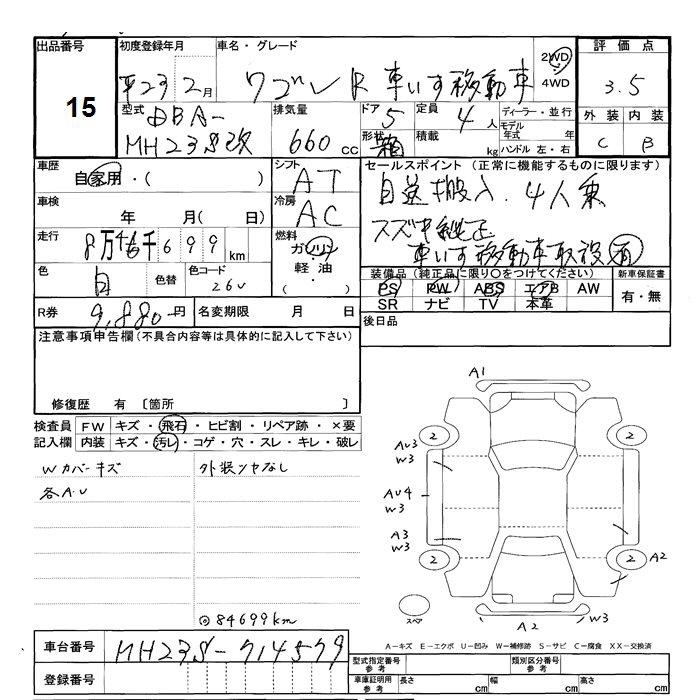 出品番号 初度登録年月 車名・グレード 2WD 4WD 評価点
15
平23年2月 ワゴンR 車いす移動車 3.5
型式 DBA- 排気量 ドア 5 定員 4人 ディーラー・並行 外装 内装
MH23S改 660cc 形状 箱 積載 kg モデル年式 年 C B
ハンドル 左・右
車歴 自家用・( ) シフト AT セールスポイント(正常に機能するものに限ります)
車検 年 月( 日) 冷房 AC 自送搬入. 4人乗
走行 8万4千699km 燃料 ガソリン 軽油・( ) スズキ純正
車いす移動車
色 白 色替 色コード 26U 装備品(純正品に限り○をつけてください) 新車保証書
PS PW ABS エアB AW 有・無
SR ナビ TV 本革
R券 9,880円 名変期限 月 日 後日品
注意事項申告欄(不具合内容等は具体的に記入して下さい)
修復歴 有 〔箇所 〕
検査員 FW キズ・飛石・ヒビ割・リペア跡・×要
記入欄 内装 キズ・汚レ・コゲ・穴・スレ・キレ・破レ
Wカバーキズ 外装ツヤなし
各A.U
◎84699km
A1
2 2
AU3
W3
AU4
W3
A3
W3
2 2 A2
スペア
A2 W3
A-キズ E-エクボ U-凹み W-補修跡 S-サビ C-腐食 XX-交換済
車台番号 MH23S-714579
登録番号
型式指定番号 参考 類別区分番号 参考
車庫証明用 参考 長さ cm 幅 cm 高さ cm